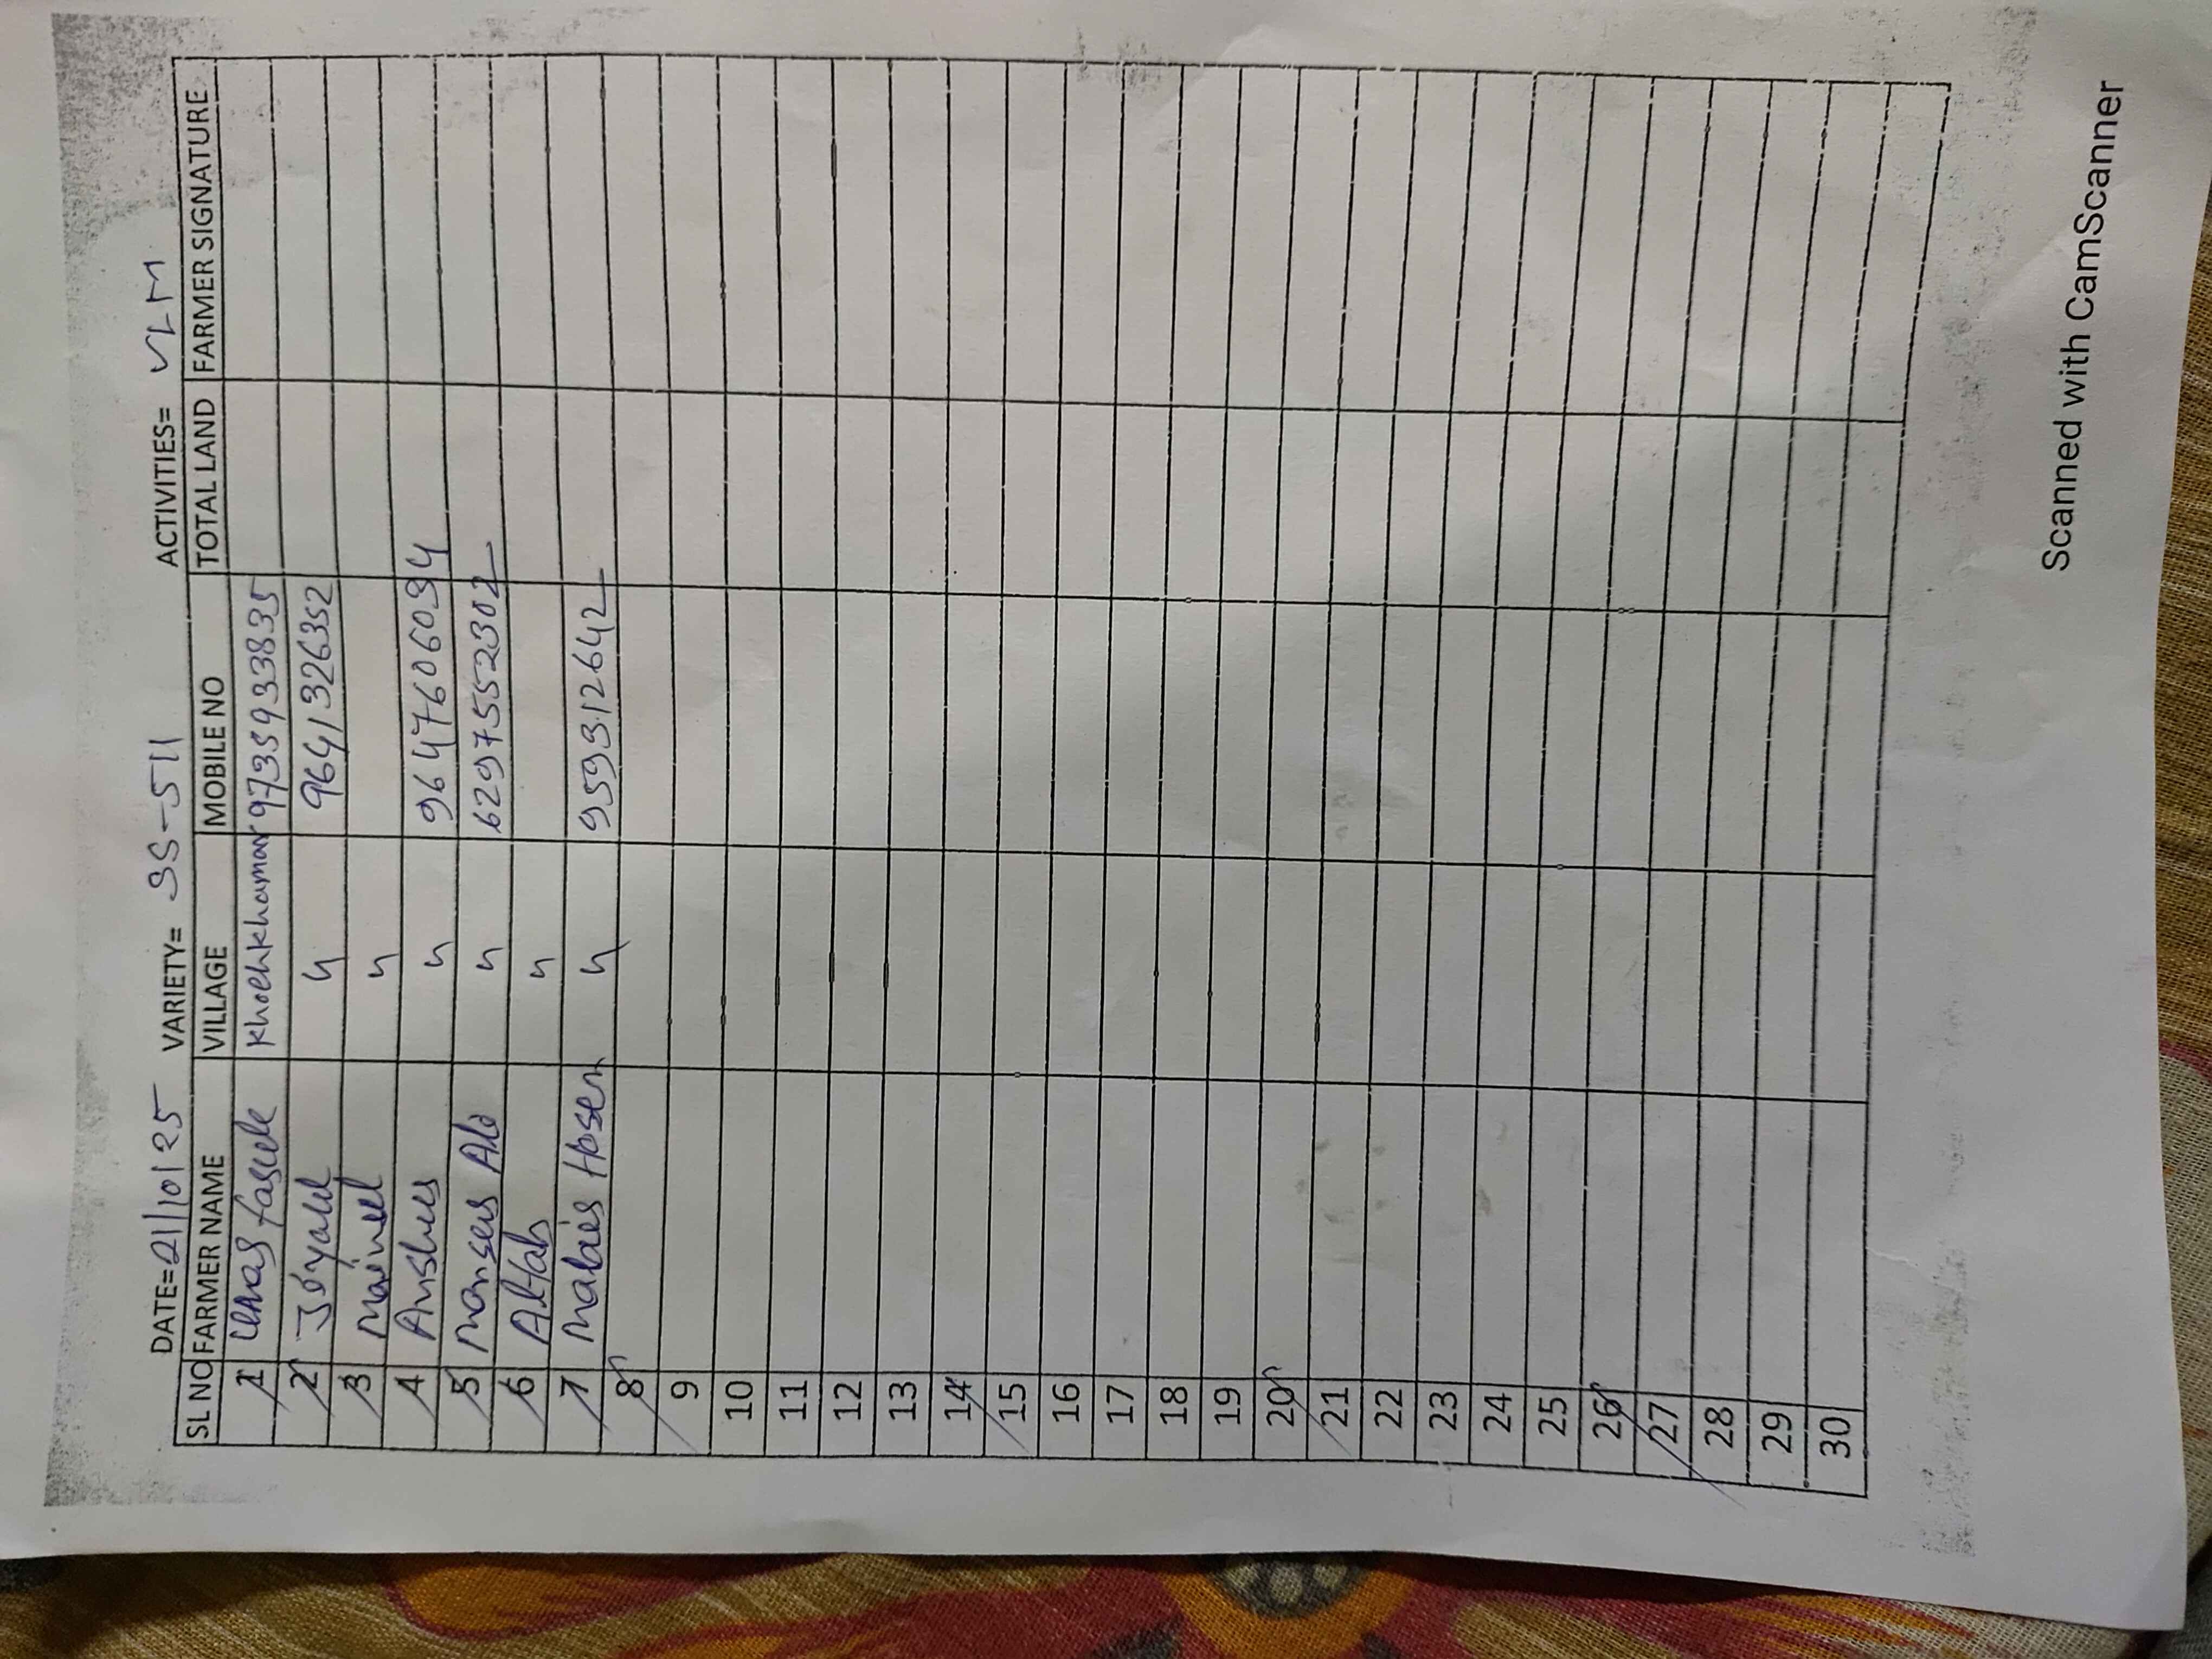 DATE= 21/10/25 VARIETY= SS-511 ACTIVITIES= VLM
SL NO FARMER NAME VILLAGE MOBILE NO TOTAL LAND FARMER SIGNATURE
1 9735933835
2 Joynul 〃 9641326352
3 Mainul 〃
4 〃 9647606034
5 〃 6297552302
6 Altab 〃
7 Hosen 〃 959312642
8
9
10
11
12
13
14
15
16
17
18
19
20
21
22
23
24
25
26
27
28
29
30
Scanned with CamScanner